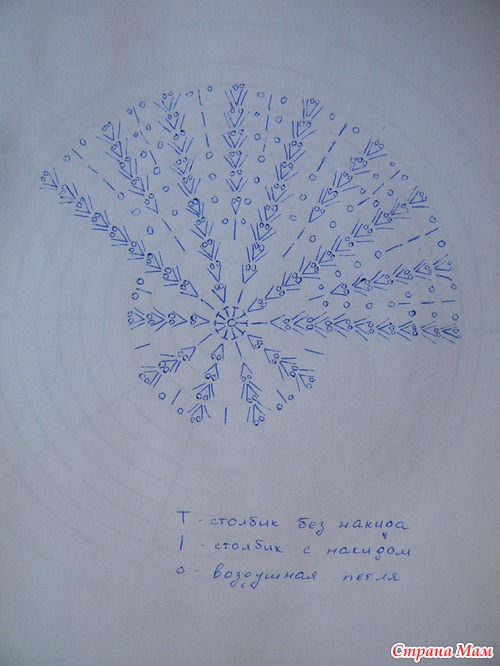 T - столбик без накида
| - столбик с накидом
o - воздушная петля
Страна Мам